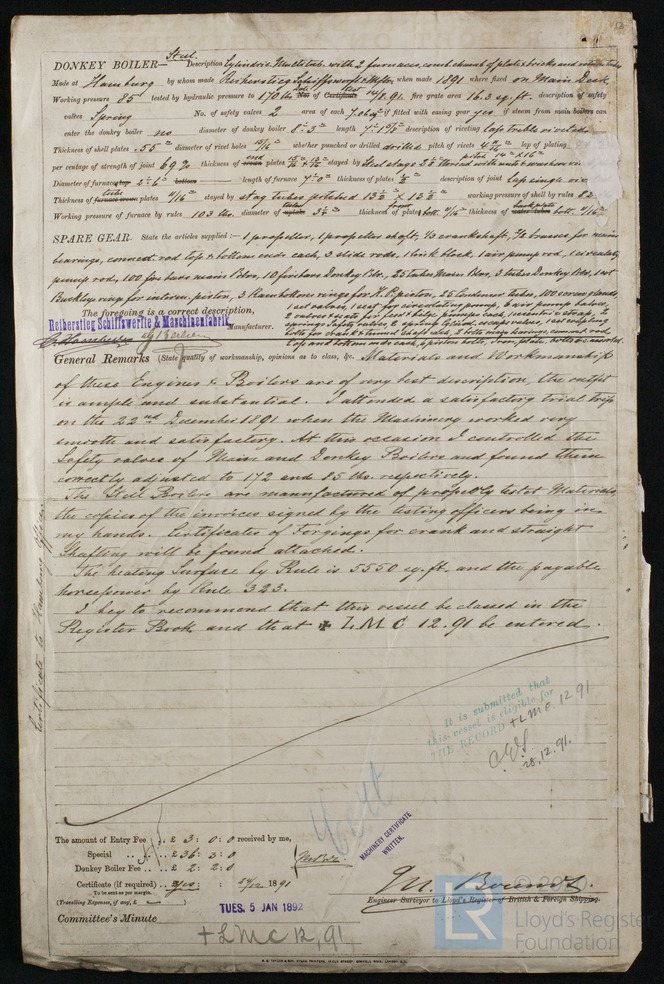 DONKEY BOILER— Steel Description Cylindric. Multitub. with 2 furnaces, comb. chamb. of plates, bricks and
Made at Hamburg by whom made Reiherstieg Schiffswerfte & Mfbr. when made 1891 where fixed on Main Deck
Working pressure 85 tested by hydraulic pressure to 170 lbs No. of Certificate 14/8.91. fire grate area 16.3 sq. ft. description of safety
valves Spring No. of safety valves 2 area of each 7.06 if fitted with easing gear yes if steam from main boilers can
enter the donkey boiler no diameter of donkey boiler 8'-3" length description of riveting lap treble riveted
Thickness of shell plates .55" diameter of rivet holes 15/16" whether punched or drilled drilled pitch of rivets lap of plating
per centage of strength of joint 69% thickness of crown plates stayed by Steel stays
Diameter of furnace top 2'-6" bottom length of furnace 7'-0" thickness of plates description of joint lap single riv.
Thickness of furnace crown plates stayed by stay tubes pitched 13½" x 13½" working pressure of shell by rules 82
Working pressure of furnace by rules 103 lbs. diameter of uptake thickness of plates thickness of water tubes
SPARE GEAR. State the articles supplied:— 1 propeller, 1 propeller shaft, ½ crankshaft, ½ brasses for main
bearings, connect. rod top & bottom ends each, 3 slide rods, 1 link block, 1 air pump rod, 1 circulatg
pump rod, 100 fire bars main Blrs, 10 firebars Donkey Blr., 25 tubes Main Blrs, 3 tubes Donkey Blr., 1 set
Buckley rings for interm. piston, 3 Ramsbottom rings for H.P. piston, 25 Condenser tubes, 100
1 set valves, 1 seat for circulating pump, 6 air pump valves,
The foregoing is a correct description,
2 valves & seats for feed & bilge pumps each, 1 eccentric strap, 2
springs Safety valves, 2 springs Cylind. escape valves, 1 set coupling
Reiherstieg Schiffswerfte & Maschinenfabrik Manufacturer.
top and bottom ends each, pistons bolts, iron, plate, bolts etc. assorted.
General Remarks (State quality of workmanship, opinions as to class, &c. Materials and Workmanship
of these Engines & Boilers are of very best description, the outfit
is ample and substantial. I attended a satisfactory trial trip
on the 22nd December 1891 when the Machinery worked very
smooth and satisfactory. At this occasion I controlled the
Safety valves of Main and Donkey Boilers and found them
correctly adjusted to 172 and 85 lbs. respectively.
The Steel Boilers are manufactured of properly tested Materials
the copies of the invoices signed by the testing officers being in
my hands. Certificates of Forgings for crank and straight
Shafting will be found attached.
The heating Surface by Rule is 5550 sq. ft. and the payable
horsepower by Rule 323.
I beg to recommend that this vessel be classed in the
Register Book and that ✠ L.M.C 12.91 be entered.
Certificate to Hamburg Office
It is submitted that
this vessel is eligible for
THE RECORD + LMC. 12 91
28.12.91.
MACHINERY CERTIFICATE
WRITTEN.
The amount of Entry Fee .. £ 3 : 0 : 0 received by me,
Special .. .. £ 36 : 3 : 0
Donkey Boiler Fee .. .. £ 2 : 2 : 0
Certificate (if required) .. yes : 1891
To be sent as per margin.
(Travelling Expenses, if any, £
Engineer Surveyor to Lloyd's Register of British & Foreign Shipping.
TUES. 5 JAN 1892
Committee's Minute
+ LMC 12,91
LR
Lloyd's Register
Foundation